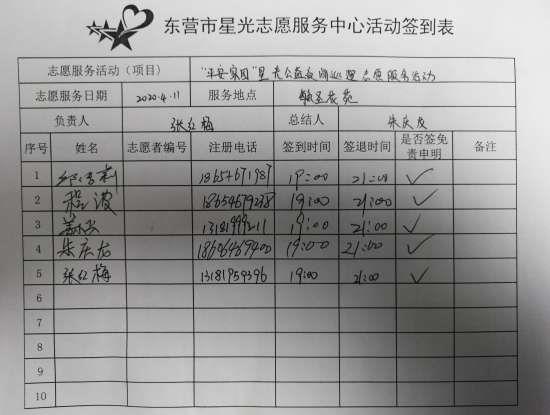 东营市星光志愿服务中心活动签到表
志愿服务活动（项目） "平安家园"星光公益夜间巡逻志愿服务活动
志愿服务日期 2020.4.11 服务地点
负责人 张红梅 总结人 朱庆友
序号 姓名 志愿者编号 注册电话 签到时间 签退时间 是否签免责申明 备注
1 18654671987 19:00 21:00 ✓
2 程波 18654679238 19:00 21:00 ✓
3 13181999211 19:00 21:00 ✓
4 朱庆友 18646469400 19:00 21:00 ✓
5 张红梅 13181959396 19:00 21:00 ✓
6
7
8
9
10